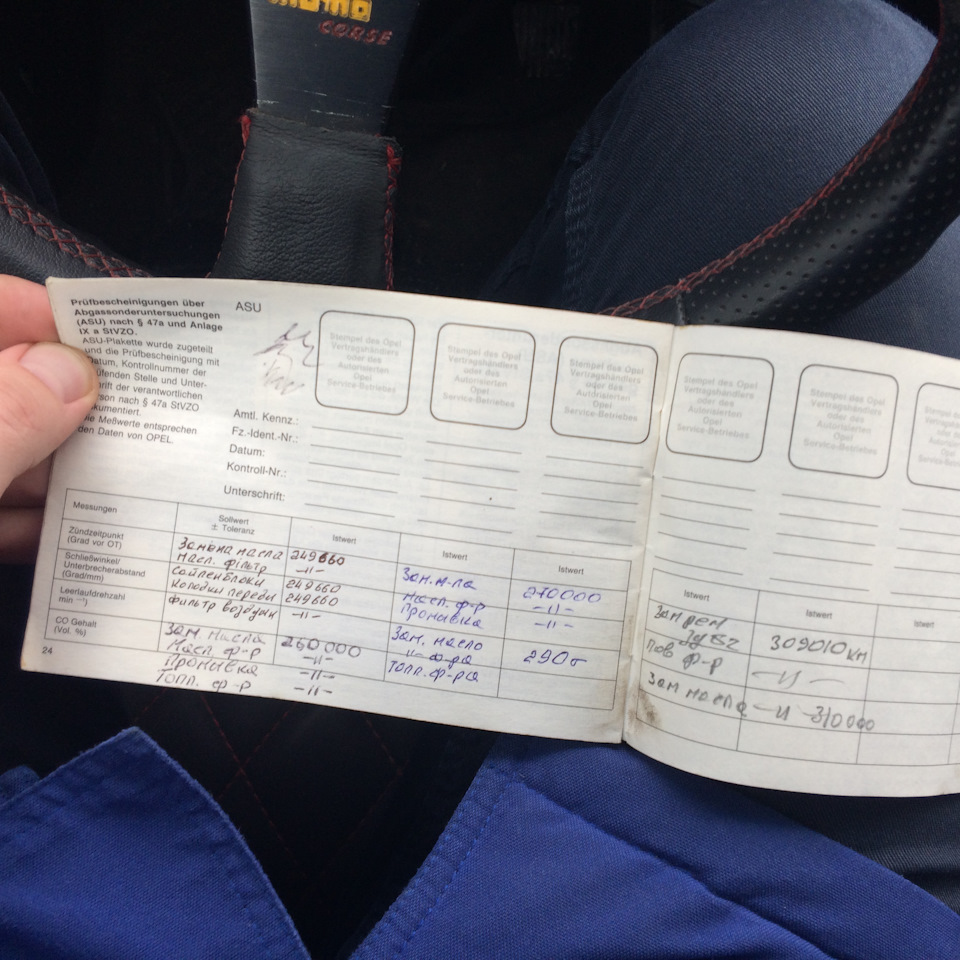 momo
CORSE
Prüfbescheinigungen über
Abgassonderuntersuchungen
(ASU) nach § 47a und Anlage
IX a StVZO.
ASU-Plakette wurde zugeteilt
und die Prüfbescheinigung mit
atum, Kontrollnummer der
üfenden Stelle und Unter-
hrift der verantwortlichen
rson nach § 47a StVZO
kumentiert.
ie Meßwerte entsprechen
den Daten von OPEL.
ASU
Stempel des Opel
Vertragshändlers
oder des
Autorisierten
Opel
Service-Betriebes
Stempel des Opel
Vertragshändlers
oder des
Autorisierten
Opel
Service-Betriebes
Stempel des Opel
Vertragshändlers
oder des
Autorisierten
Opel
Service-Betriebes
Stempel des Opel
Vertragshändlers
oder des
Autorisierten
Opel
Service-Betriebes
Stempel des Opel
Vertragshändlers
oder des
Autorisierten
Opel
Service-Betriebes
Amtl. Kennz.:
Fz.-Ident.-Nr.:
Datum:
Kontroll-Nr.:
Unterschrift:
Messungen
Sollwert
± Toleranz
Istwert
Istwert
Istwert
Istwert
Istwert
Istwert
Zündzeitpunkt
(Grad vor OT)
Schließwinkel/
Unterbrecherabstand
(Grad/mm)
Leerlaufdrehzahl
min ⁻¹)
CO Gehalt
(Vol. %)
24
Замена масла 249660
масл. фільтр -11-
сайленблоки 249660
колодки переди 249660
фильтр воздушн -11-
Зам. масла 260000
Масл. ф-р -11-
Промивка -11-
Топл. ф-р -11-
Зам. м-ла 270000
масл. ф-р -11-
Промивка -11-
Зам. масло 290т
Топл. ф-ра
Зам рем
309010 км
Пов ф-р -11-
Зам масла -11- 310000